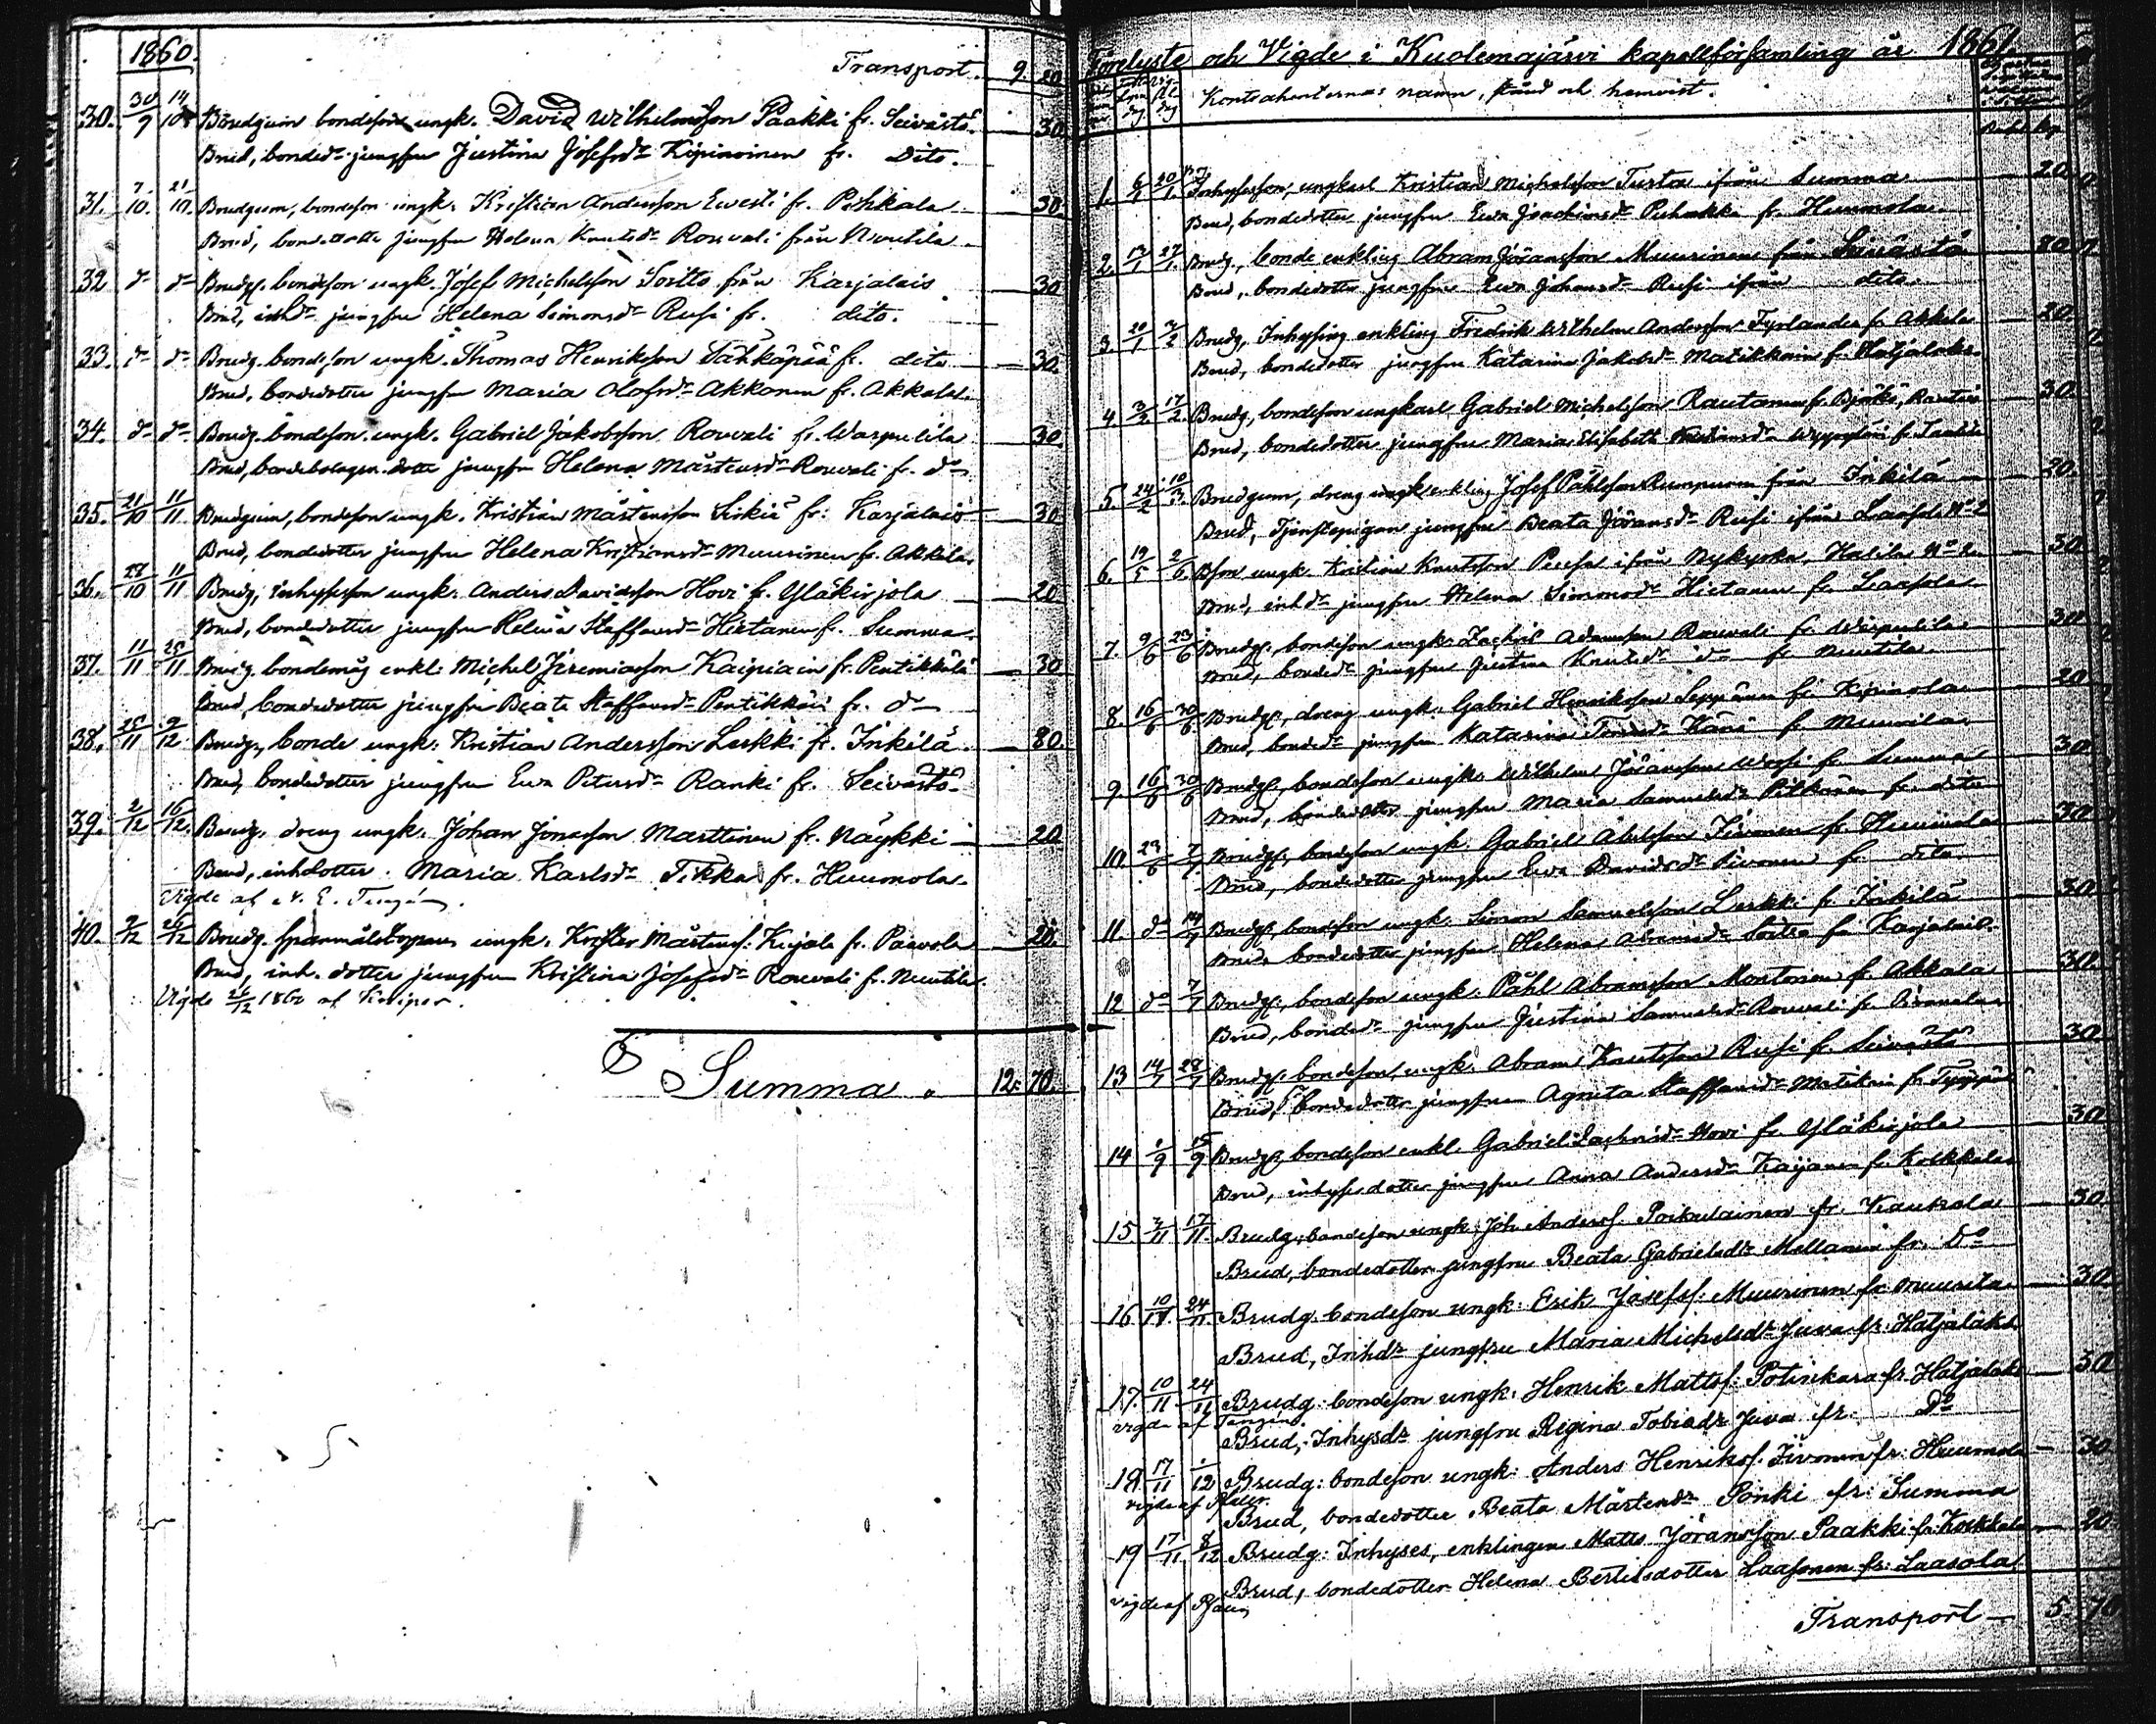 1860.
Transport. 9 20
30. 30/9 14/10 Brudgum bondeson ungk. David Wilhelmsson Paakki fr. Seivästö 30.
Brud, bonded:r jungfru Justina Josefsd:r Kipinoinen fr. Dito.
31. 7/10. 21/10. Brudgum, bondeson ungk. Kristian Andersson Ewesti fr. Pihkala 30.
Brud, bondedotter jungfru Helena Knutsd:r Rouvali från Muutila
32 d:o d:o Brudg. bondeson ungk. Josef Michelsson Soitto från Karjalais 30
Brud, inhd:r jungfru Helena Simonsd:r Rusi fr. dito.
33. d:o d:o Brudg. bondeson ungk. Thomas Henriksson Tähkäpää fr. dito 30.
Brud, bondedotter jungfru Maria Olofsd:r Akkanen fr. Akkala
34. d:o d:o Brudg. bondeson ungk. Gabriel Jakobsson Rouvali fr. Warpulila 30
Brud, bondebolagsm. dotter jungfru Helena Mårtensd:r Rouvali fr. d:o
35. 21/10 11/11 Brudgum, bondeson ungk. Kristian Mårtensson Sirkiä fr: Karjalais 30
Brud, bondedotter jungfru Helena Kristiansd:r Muurinen fr. Akkala
36. 28/10 11/11 Brudg, inhysesson ungk. Anders Davidsson Hovi fr. Yläkirjola 20
Brud, bondedotter jungfru Helena Staffansd:r Hietanen fr. Summa.
37. 11/11 25/11 Brudg. bondemåg enkl. Michel Jeremiasson Kaipiain fr. Pentikkälä 30
Brud, bondedotter jungfru Beata Staffansd:r Pentikkäin fr. d:o
38. 25/11 9/12. Brudg, bonde ungk. Kristian Andersson Leskki fr. Inkilä 80.
Brud, bondedotter jungfru Ewa Petersd:r Ranki fr. Seivästö
39. 2/12 16/12. Brudg. dreng ungk. Johan Jonasson Marttinen fr. Näykki 20
Brud, inhdotter. Maria Karlsd:r Tikka fr. Huumola.
Vigde af
40. 9/12 26/12 Brudg. ungk. Krister Mårtenss. Kirjola fr. Paavola 20.
Brud, inh. dotter jungfrun Kristina Josefsd:r Rouvali fr. Muutila.
Vigde 26/12 1860 af
Summa. 12. 70.
Förelyste och Vigde i Kuolemajärvi kapellförsamling år 1861.
Kontrahenternas namn, stånd och hemvist.
1. 6/1 20/1. Inhysesson, ungkarl Kristian Michelsson Turta ifrån Summa 20.
Brud, bondedotter jungfru Ewa Joachimsd:r Puhakka fr. Huumola
2. 13/1 27/1. Brudg., bonde enkling Abram Jöransson Muurinen från Seivästö 80
Brud, bondedotter jungfru Ewa Johansd:r Rusi ifrån dito.
3. 20/1 3/2 Brudg, Inhysing enkling Fredrik Wilhelm Andersson Tyrlander fr. Akkala 20.
Brud, bondedotter jungfru Katarina Jakobsd:r Matikkain fr. Hatjalaks.
4 3/2 17/2. Brudg, bondeson ungkarl Gabriel Michelsson Rautanen fr. Björkö, 30.
Brud, bondedotter jungfru Maria Elisabeth Kristiansd:r
5. 24/2 10/3. Brudgum, dreng enkling Josef Påhlsson Rumpunen från Inkilä 30.
Brud, Tjenstepigan jungfru Beata Jöransd:r Rusi ifrån Laasola N:o 2
6. 19/5 2/6. Bson ungk. Kristian Knutsson Peussa ifrån Nykyrka, Halila N:o 2 30.
Brud, inhd:r jungfru Helena Simonsd:r Hietanen fr. Laasola
7. 9/6 23/6 Brudg. bondeson ungk. Zachris Adamsson Rouvali fr Warpulila 30
Brud, bonded:r jungfru Justina Knutsd:r d:o fr Muutila
8. 16/6 30/6. Brudg, dreng ungk. Gabriel Henriksson Seppänen fr Kipinola 20.
Brud, bonded:r jungfru Katarina fr Muurila.
9. 16/6 30/6 Brudg, bondeson ungk. Wilhelm Jöransson fr. Summa 30
Brud, bondedotter jungfru Maria Samuelsd:r Pitkänen fr. dito
10 23/6 7/7. Brudg, bondeson ungk. Gabriel Abelsson Iivonen fr. Huumola 30
Brud, bondedotter jungfru Ewa Davidsd:r Iivonen fr. dito
11. d:o 14/7 Brudg, bondeson ungk. Simon Samuelsson Leskki fr. Inkilä 30.
Brud, bondedotter jungfru Helena Abramsd:r Soitto fr Karjalais.
12 d:o 7/7 Brudg, bondeson ungk. Påhl Abramsson Montonen fr. Akkala 30.
Brud, bonded:r jungfru Justina Samuelsd:r Rouvali fr.
13 14/7 28/7 Brudg. bondeson, ungk. Abram Knutsson Rusi fr. Seivästö 30.
Brud, bondedotter jungfrun Agneta Staffansd:r Matikain fr.
14 1/9 15/9 Brudg, bondeson enkl. Gabriel Hovi fr. Yläkirjola 30
Brud, inhyses dotter jungfru Anna Andersd:r Karjanen fr. Kolkkala
15. 3/11 17/11. Brudg. bondeson ungk: Joh. Anderss. Poikulainen fr. Kaukola 30.
Brud, bondedotter jungfru Beata Gabrielsdtr Mellanen fr. D:o
16 10/11. 24/11. Brudg. bondeson ungk: Erik Josefss: Muurinen fr. Muurila 30
Brud, Inhdr jungfru Maria Michelsdtr Juva fr: Hatjalaks.
17. 10/11 24/11 Brudg: bondeson ungk: Henrik Mattss: Potinkara fr. Hatjalaks 30
vigde af Tengén. Brud, Inhysdr jungfru Regina Tobiasdr Juva fr: D:o
18 17/11 1/12 Brudg: bondeson ungk: Anders Henrikss. Iivonen fr: Huumola 30
vigde af Brud, bondedotter Beata Mårtensdr Pönki fr: Summa
19 17/11 8/12 Brudg: Inhyses, enklingen Matts Jöransson Paakki fr: Kolkkala 20
vigde af Brud, bondedotter Helena Bertelsdotter Laasonen fr: Laasola.
Transport 5. 70